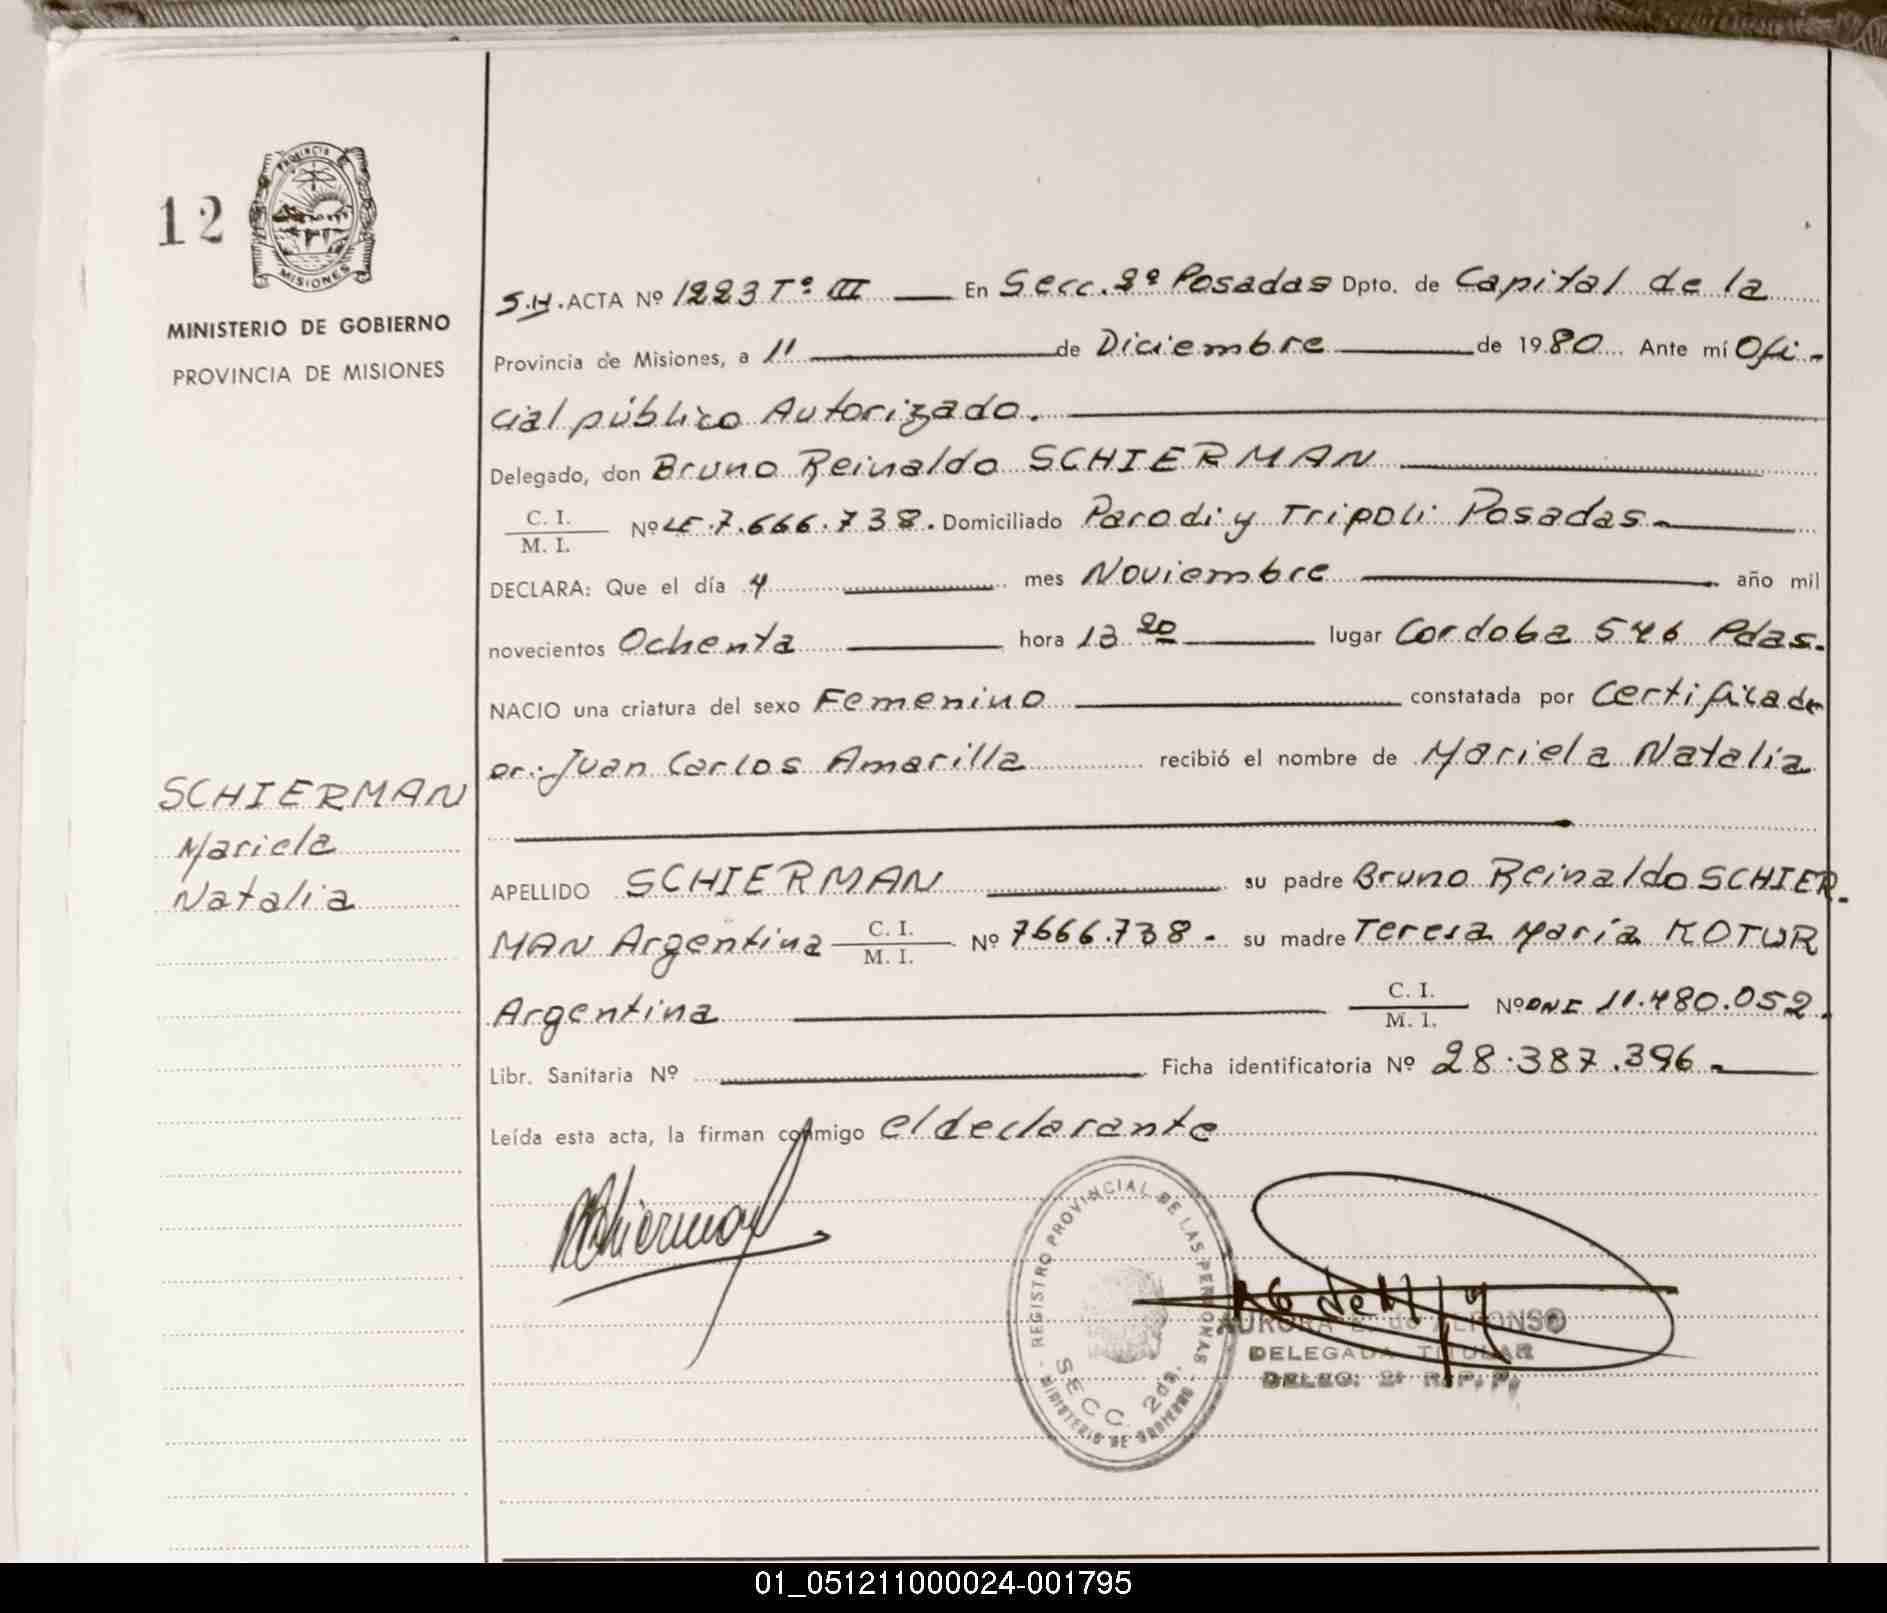 12
PROVINCIA
MISIONES
MINISTERIO DE GOBIERNO
PROVINCIA DE MISIONES
SCHIERMAN
Mariela
Natalia
S.H. ACTA Nº 1223 Tº III En Secc. 2º Posadas Dpto. de Capital de la
Provincia de Misiones, a 11 de Diciembre de 1980 Ante mí Ofi-
cial público Autorizado.
Delegado, don Bruno Reinaldo SCHIERMAN
C. I.
M. I. Nº LE. 7.666.738. Domiciliado Parodi y Tripoli Posadas-
DECLARA: Que el día 4 mes Noviembre año mil
novecientos Ochenta hora 13 20 lugar Cordoba 546 Pdas.
NACIO una criatura del sexo Femenino constatada por Certificado
Dr. Juan Carlos Amarilla recibió el nombre de Mariela Natalia
APELLIDO SCHIERMAN su padre Bruno Reinaldo SCHIER-
MAN Argentina C. I. M. I. Nº 7666.738- su madre Teresa María KOTUR
Argentina C. I. M. I. Nº DNI 11.480.052.
Libr. Sanitaria Nº Ficha identificatoria Nº 28.387.396-
Leída esta acta, la firman conmigo el declarante
REGISTRO PROVINCIAL DE LAS PERSONAS
SECC. 2da.
MINISTERIO DE GOBIERNO
AURORA E. de ALFONSO
DELEGADA TITULAR
DELEG. 2ª R.P.P.
01_051211000024-001795